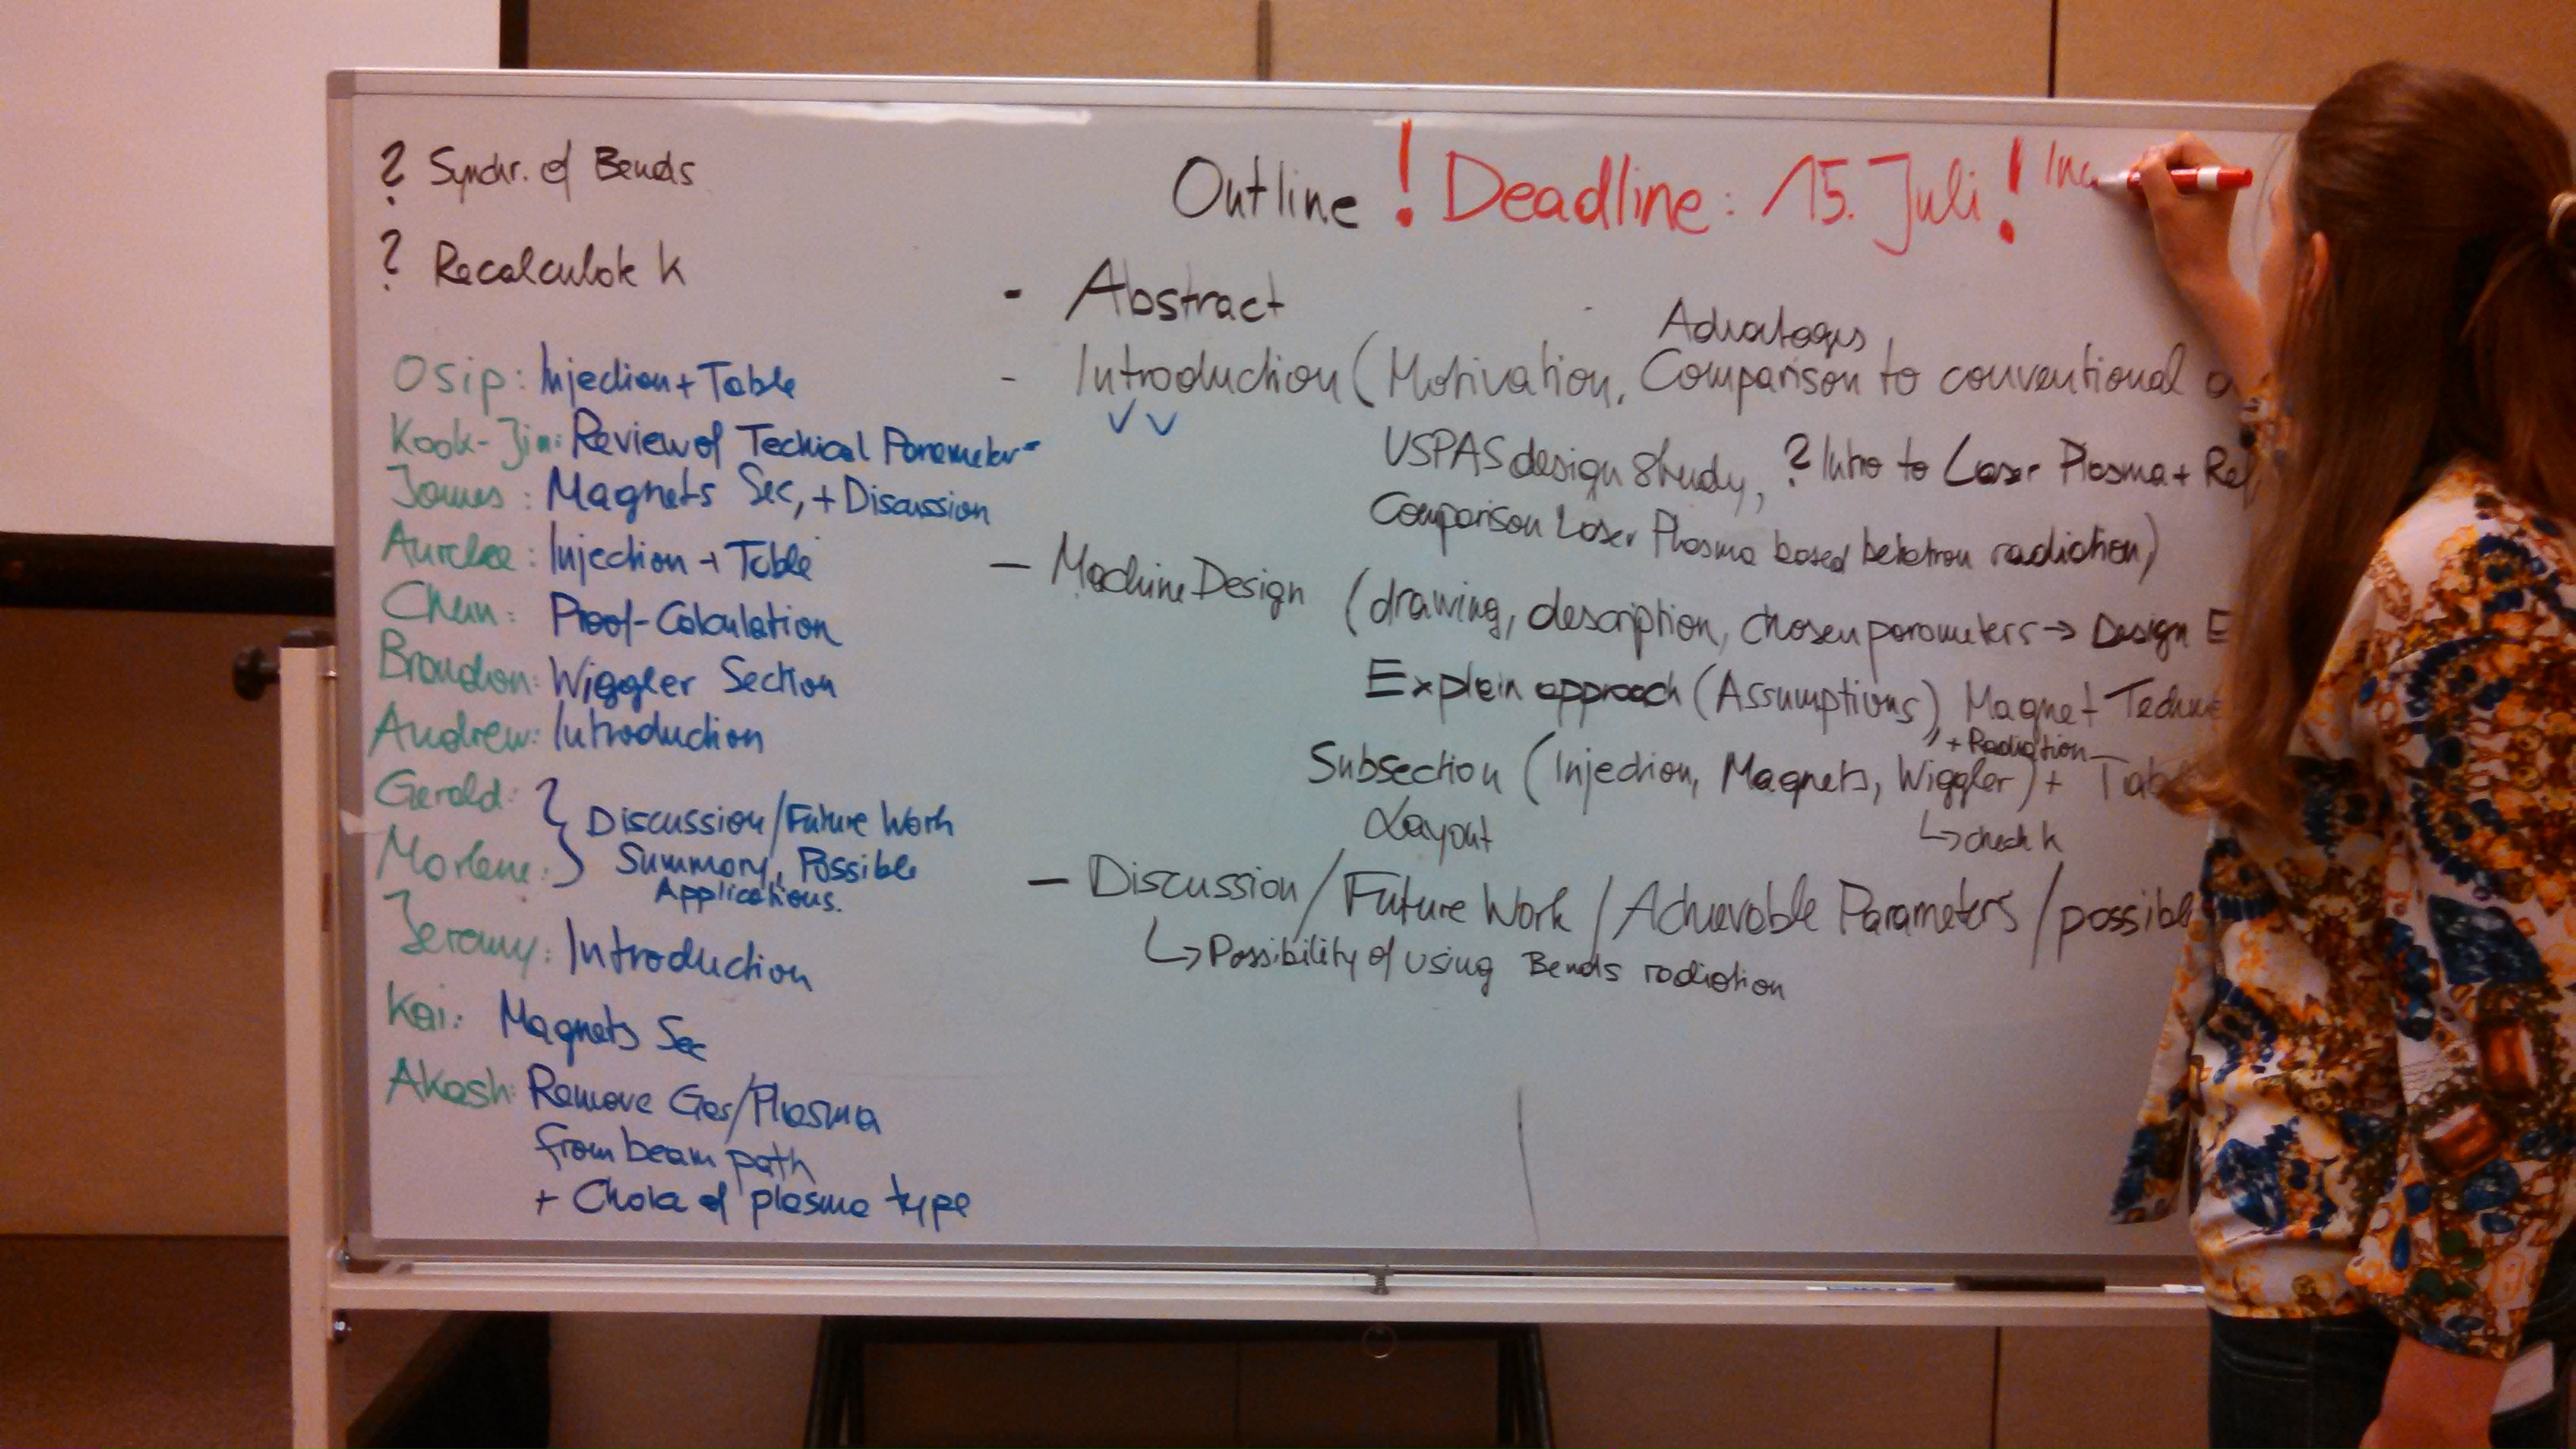 ? Synchr. of Bends
? Recalculate k
Osip: Injection + Table
Kook-Jin: Review of Techical Parameter
James: Magnets Sec, + Discussion
Aurelee: Injection + Table
Chun: Proof-Calculation
Brandon: Wiggler Section
Andrew: Introduction
Gerald:
Marlene:
Discussion/Future Work
Summary, Possible
Applications.
Jeremy: Introduction
Kai: Magnets Sec
Akash: Remove Gas/Plasma
from beam path
+ Choice of plasma type
Outline ! Deadline: 15. Juli !
- Abstract
Advantages
- Introduction (Motivation, Comparison to conventional
USPAS design study, ? Intro to Laser Plasma + Ref
Comparison Laser Plasma based betatron radiation)
- Machine Design (drawing, description, chosen parameters → Design E
Explain approach (Assumptions), Magnet Techn
+ Radiation
Subsection (Injection, Magnets, Wiggler) + Tabl
Layout
↳ check k
- Discussion / Future Work / Achievable Parameters / possibl
↳ Possibility of using Bends radiation